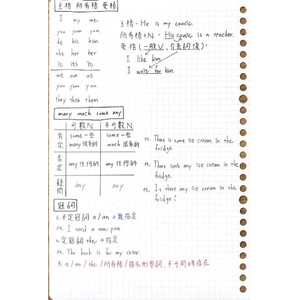 主格 所有格 受格
I my me
you your you
he his him
she her her
it its it
we our us
you your you
they their them
主格. He is my cousin.
所有格+N. His cousin is a teacher.
受格 (一般V, 介系詞後).
I like him
I wait for him
many much some any
可數N 不可數N
肯定 some 一些 some 一些
many 很多的 much 很多的
否定 any 任何的 any 任何的
疑問 any any
ex. There is some ice cream in the fridge.
ex. There isn't any ice cream in the fridge.
ex. Is there any ice cream in the fridge?
冠詞
1. 不定冠詞 a / an → 無指定
ex. I need a new pen
2. 定冠詞 the → 指定
ex. The book is for my sister.
※ a / an / the / 所有格 / 指示形容詞, 不可同時存在